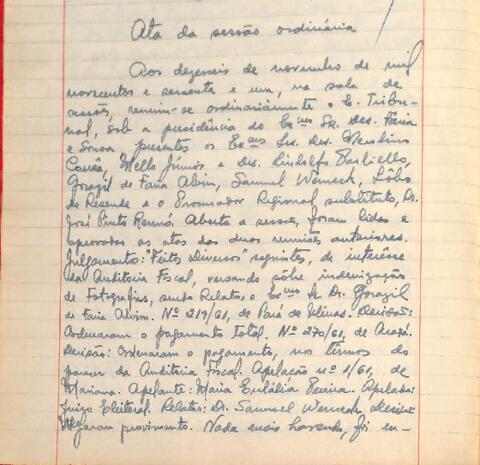 Ata da sessão ordinária
Aos dezesseis de novembro de mil
novecentos e sessenta e um, na sala de
sessões, reuniu-se ordinàriamente o E. Tribu-
nal, sob a presidência do Exmo Sr. Des. Faria
e Sousa, presentes os Exmos Srs. Des.
Corrêa, Mello Júnior e Drs. Lindolfo Barbiello,
Gorazil de Faria Alvim, Samuel Werneck, Lôbo
de Resende e o Procurador Regional substituto, Dr.
José Pinto Rennó. Aberta a sessão, foram lidas e
aprovadas as atas das duas reuniões anteriores.
Julgamento: "Feitos Diversos" seguintes, de interêsse
da Auditoria Fiscal, versando sôbre indenização
de Fotografias, sendo Relator o Exmo Sr. Dr. Gorazil
de Faria Alvim. Nº 219/61, de Pará de Minas. Decisão:
Ordenaram o pagamento total. Nº 270/61, de
Decisão: Ordenaram o pagamento, nos têrmos do
parecer da Auditoria Fiscal. Apelação nº 1/61, de
Mariana. Apelante: Maria Eulália Apelado:
Juízo Eleitoral. Relator: Dr. Samuel Werneck. Decisão:
Negaram provimento. Nada mais havendo, foi en-